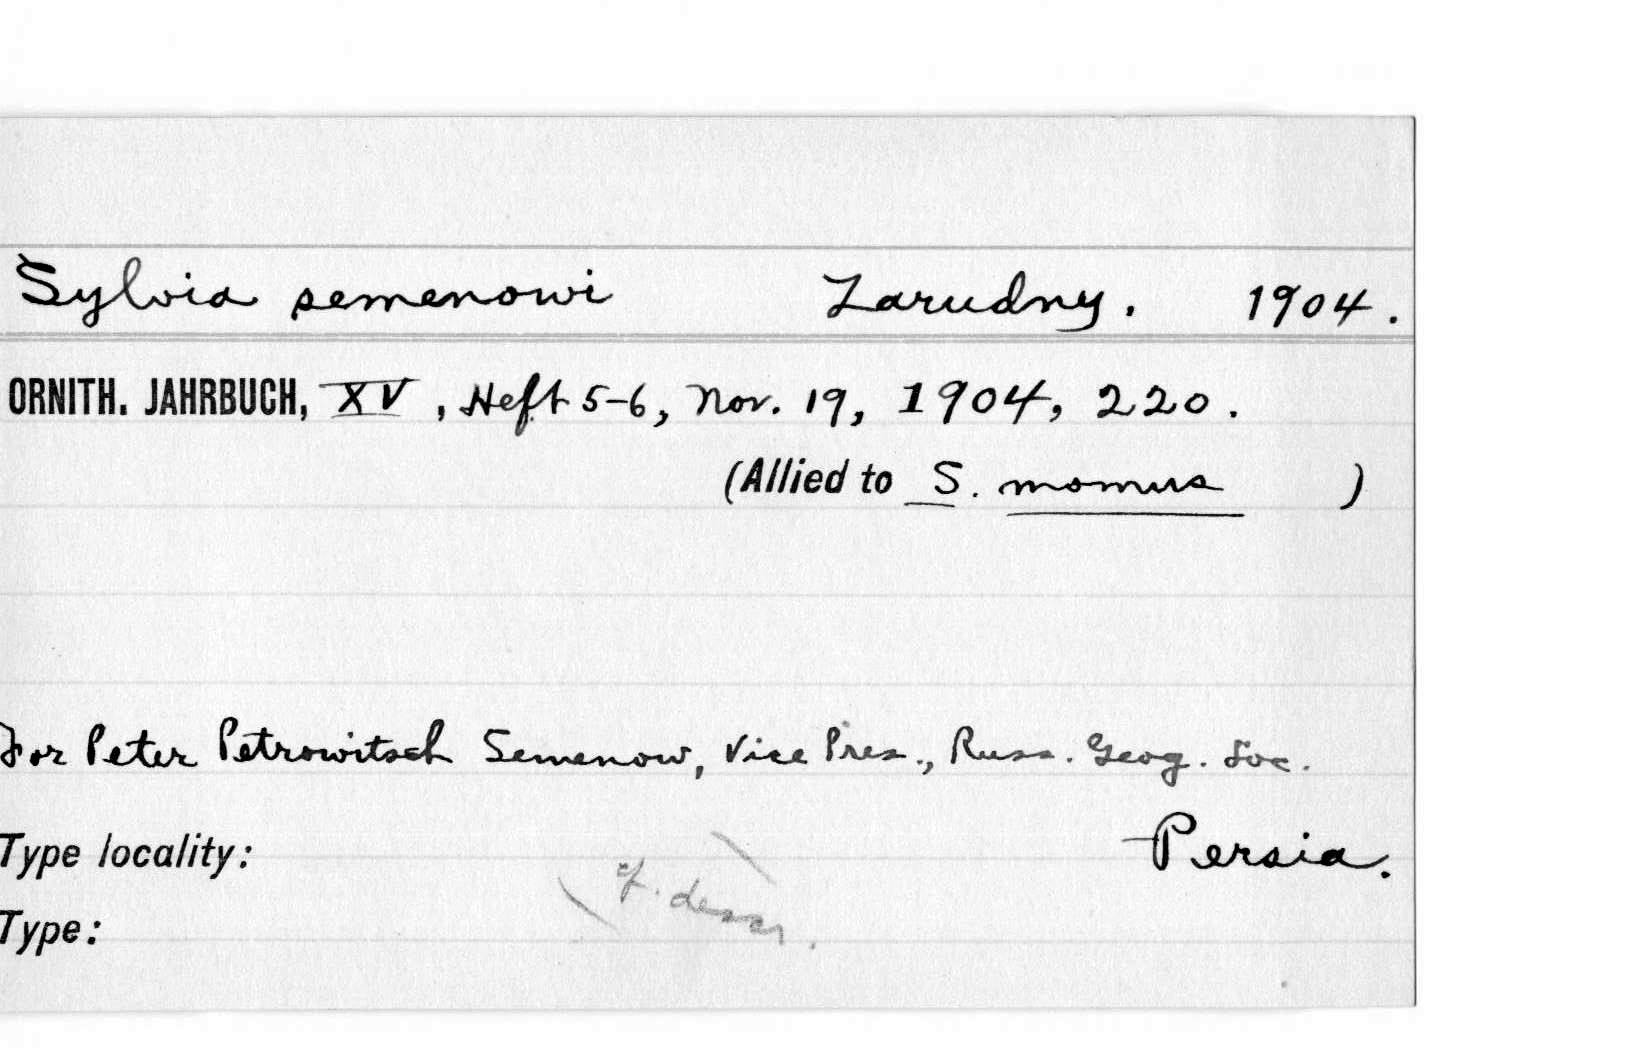 Sylvia semenowi Zarudny. 1904.
ORNITH. JAHRBUCH, XV, Heft 5-6, Nov. 19, 1904, 220.
(Allied to S. momus )
For Peter Petrowitsch Semenow, Vice Pres., Russ. Geog. Soc.
Type locality: Persia.
cf. descr.
Type: